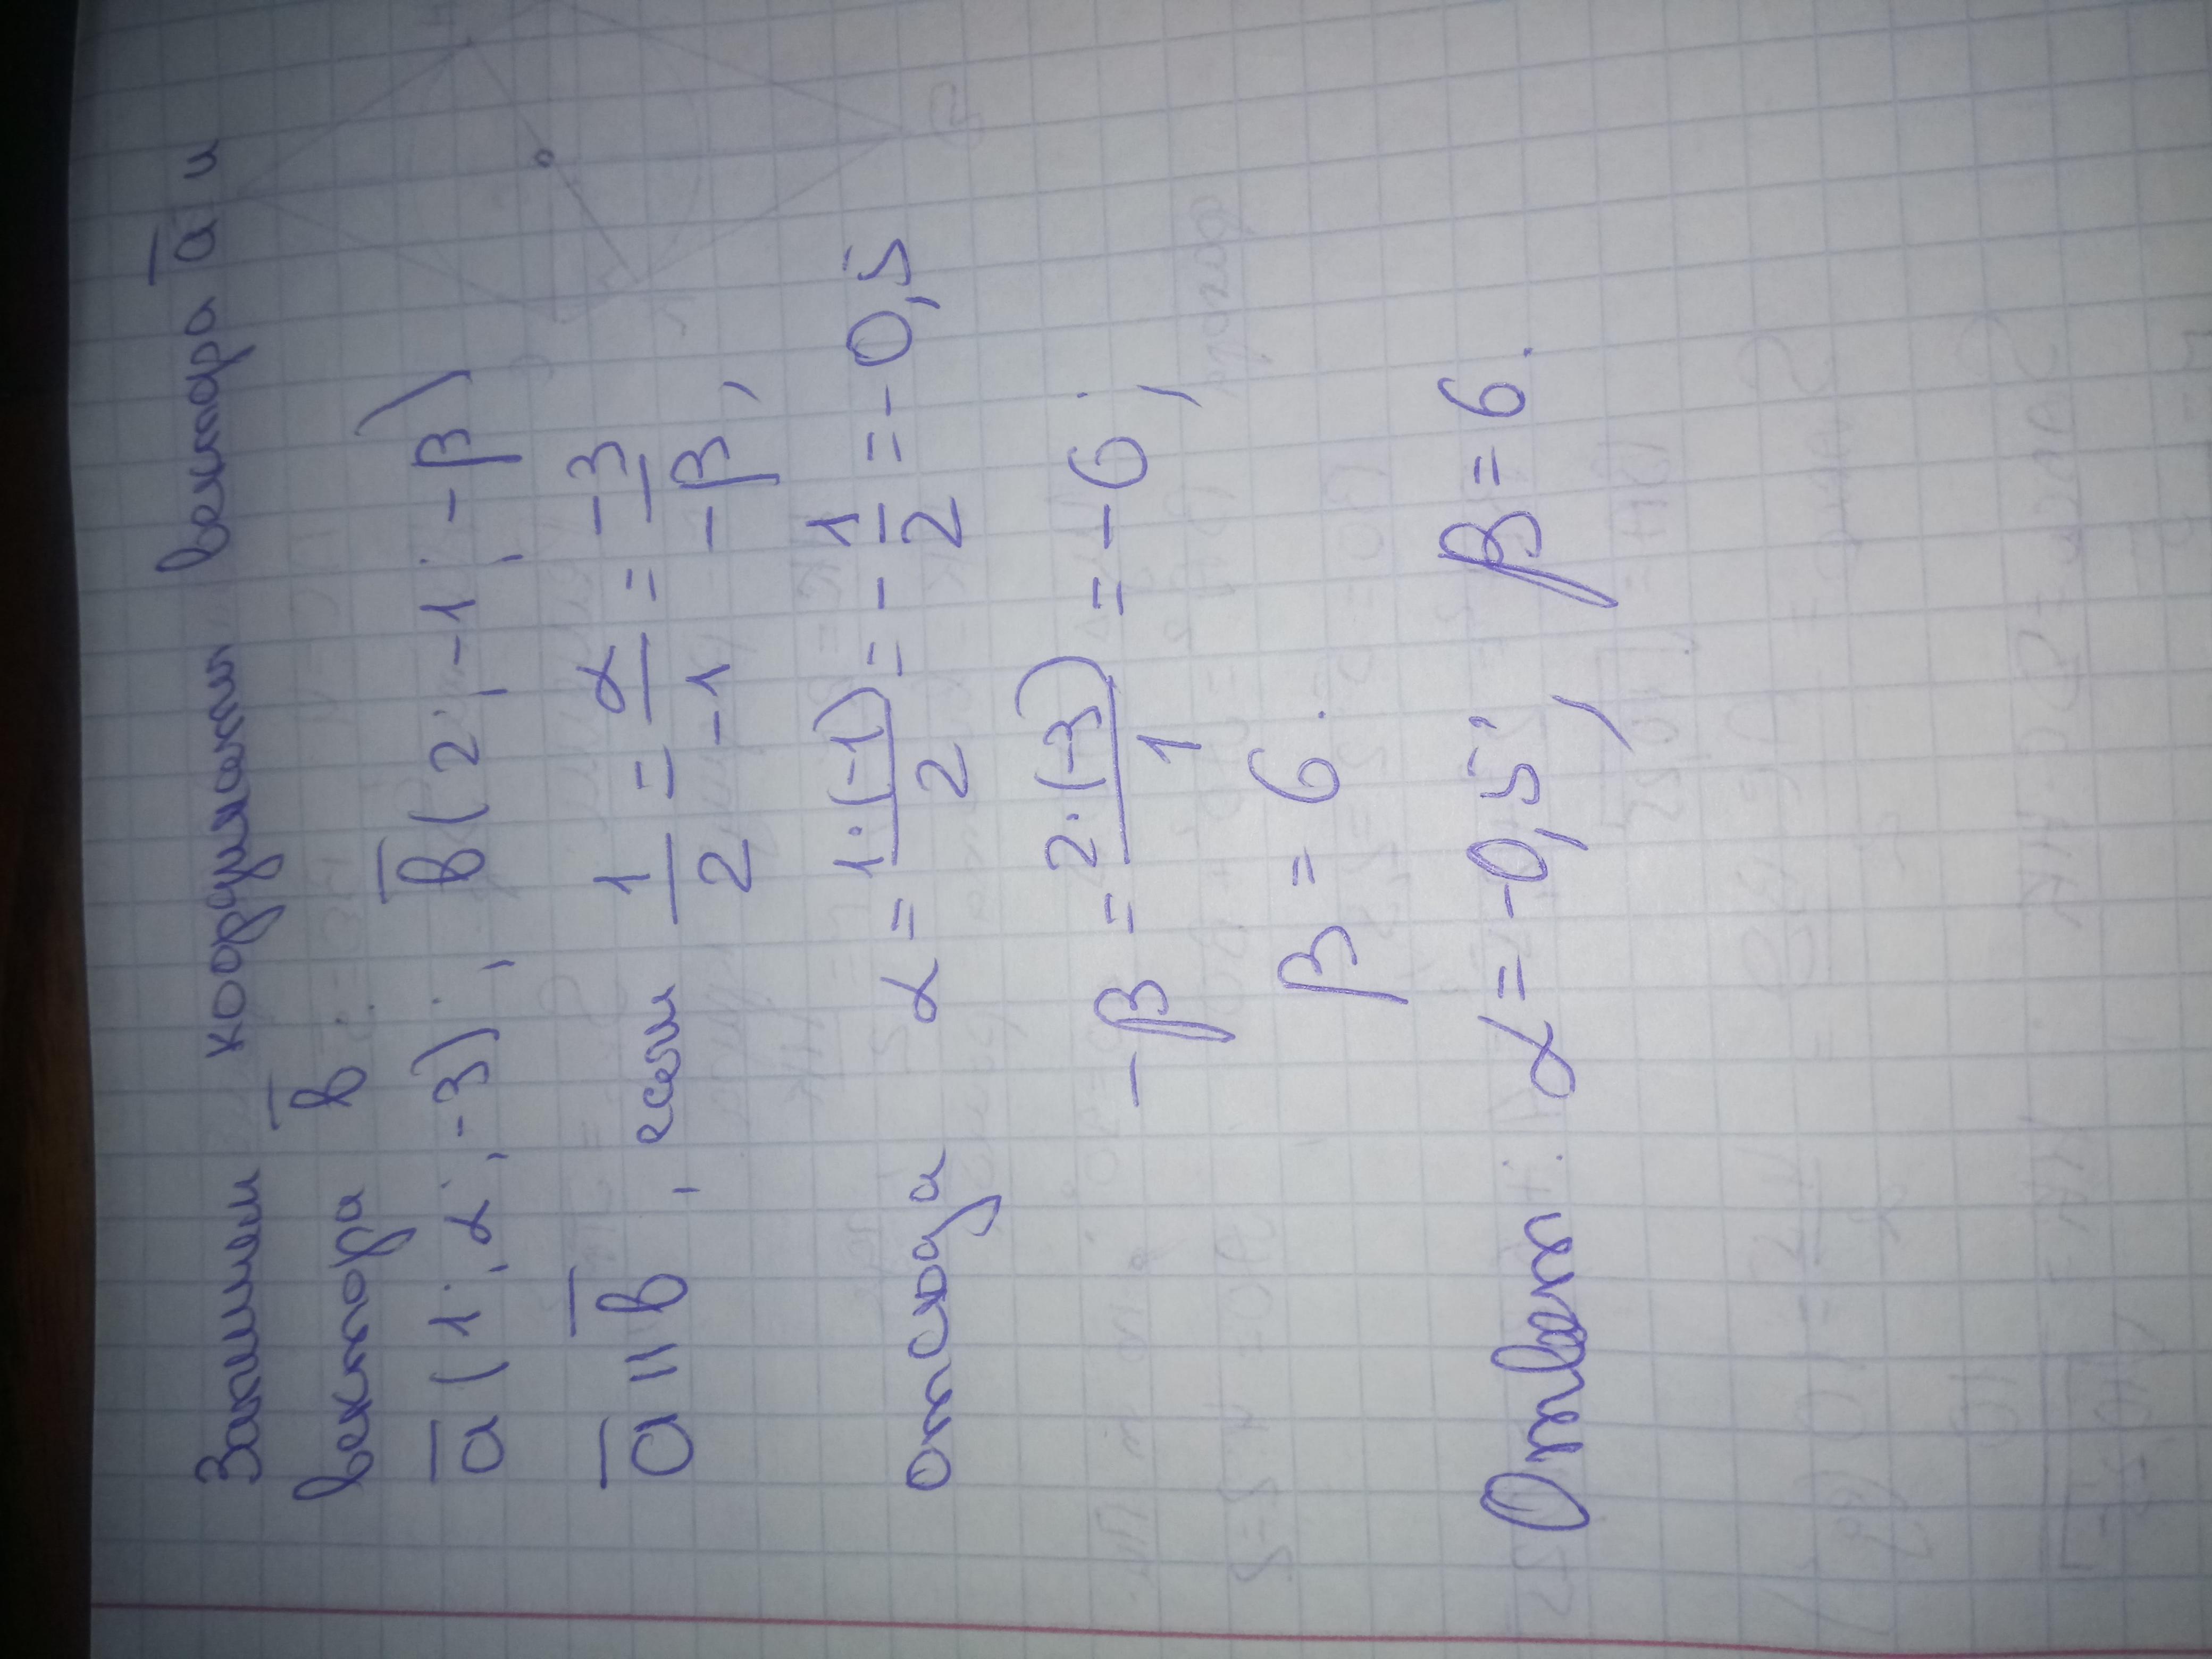 Запишем кординати вектора a̅ и
вектора b̅
a̅ (1; α; -3); b̅ (2; -1; -β)
a̅ || b̅, если 1/2 = α/-1 = -3/-β,
отсюда α = 1·(-1)/2 = -1/2 = -0,5
-β = 2·(-3)/1 = -6;
β = 6.
Ответ: α = -0,5; β = 6.